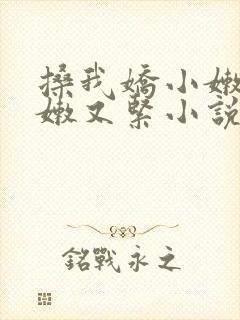 搡我嬌小嫩
嫩又緊小說
銘戰永之